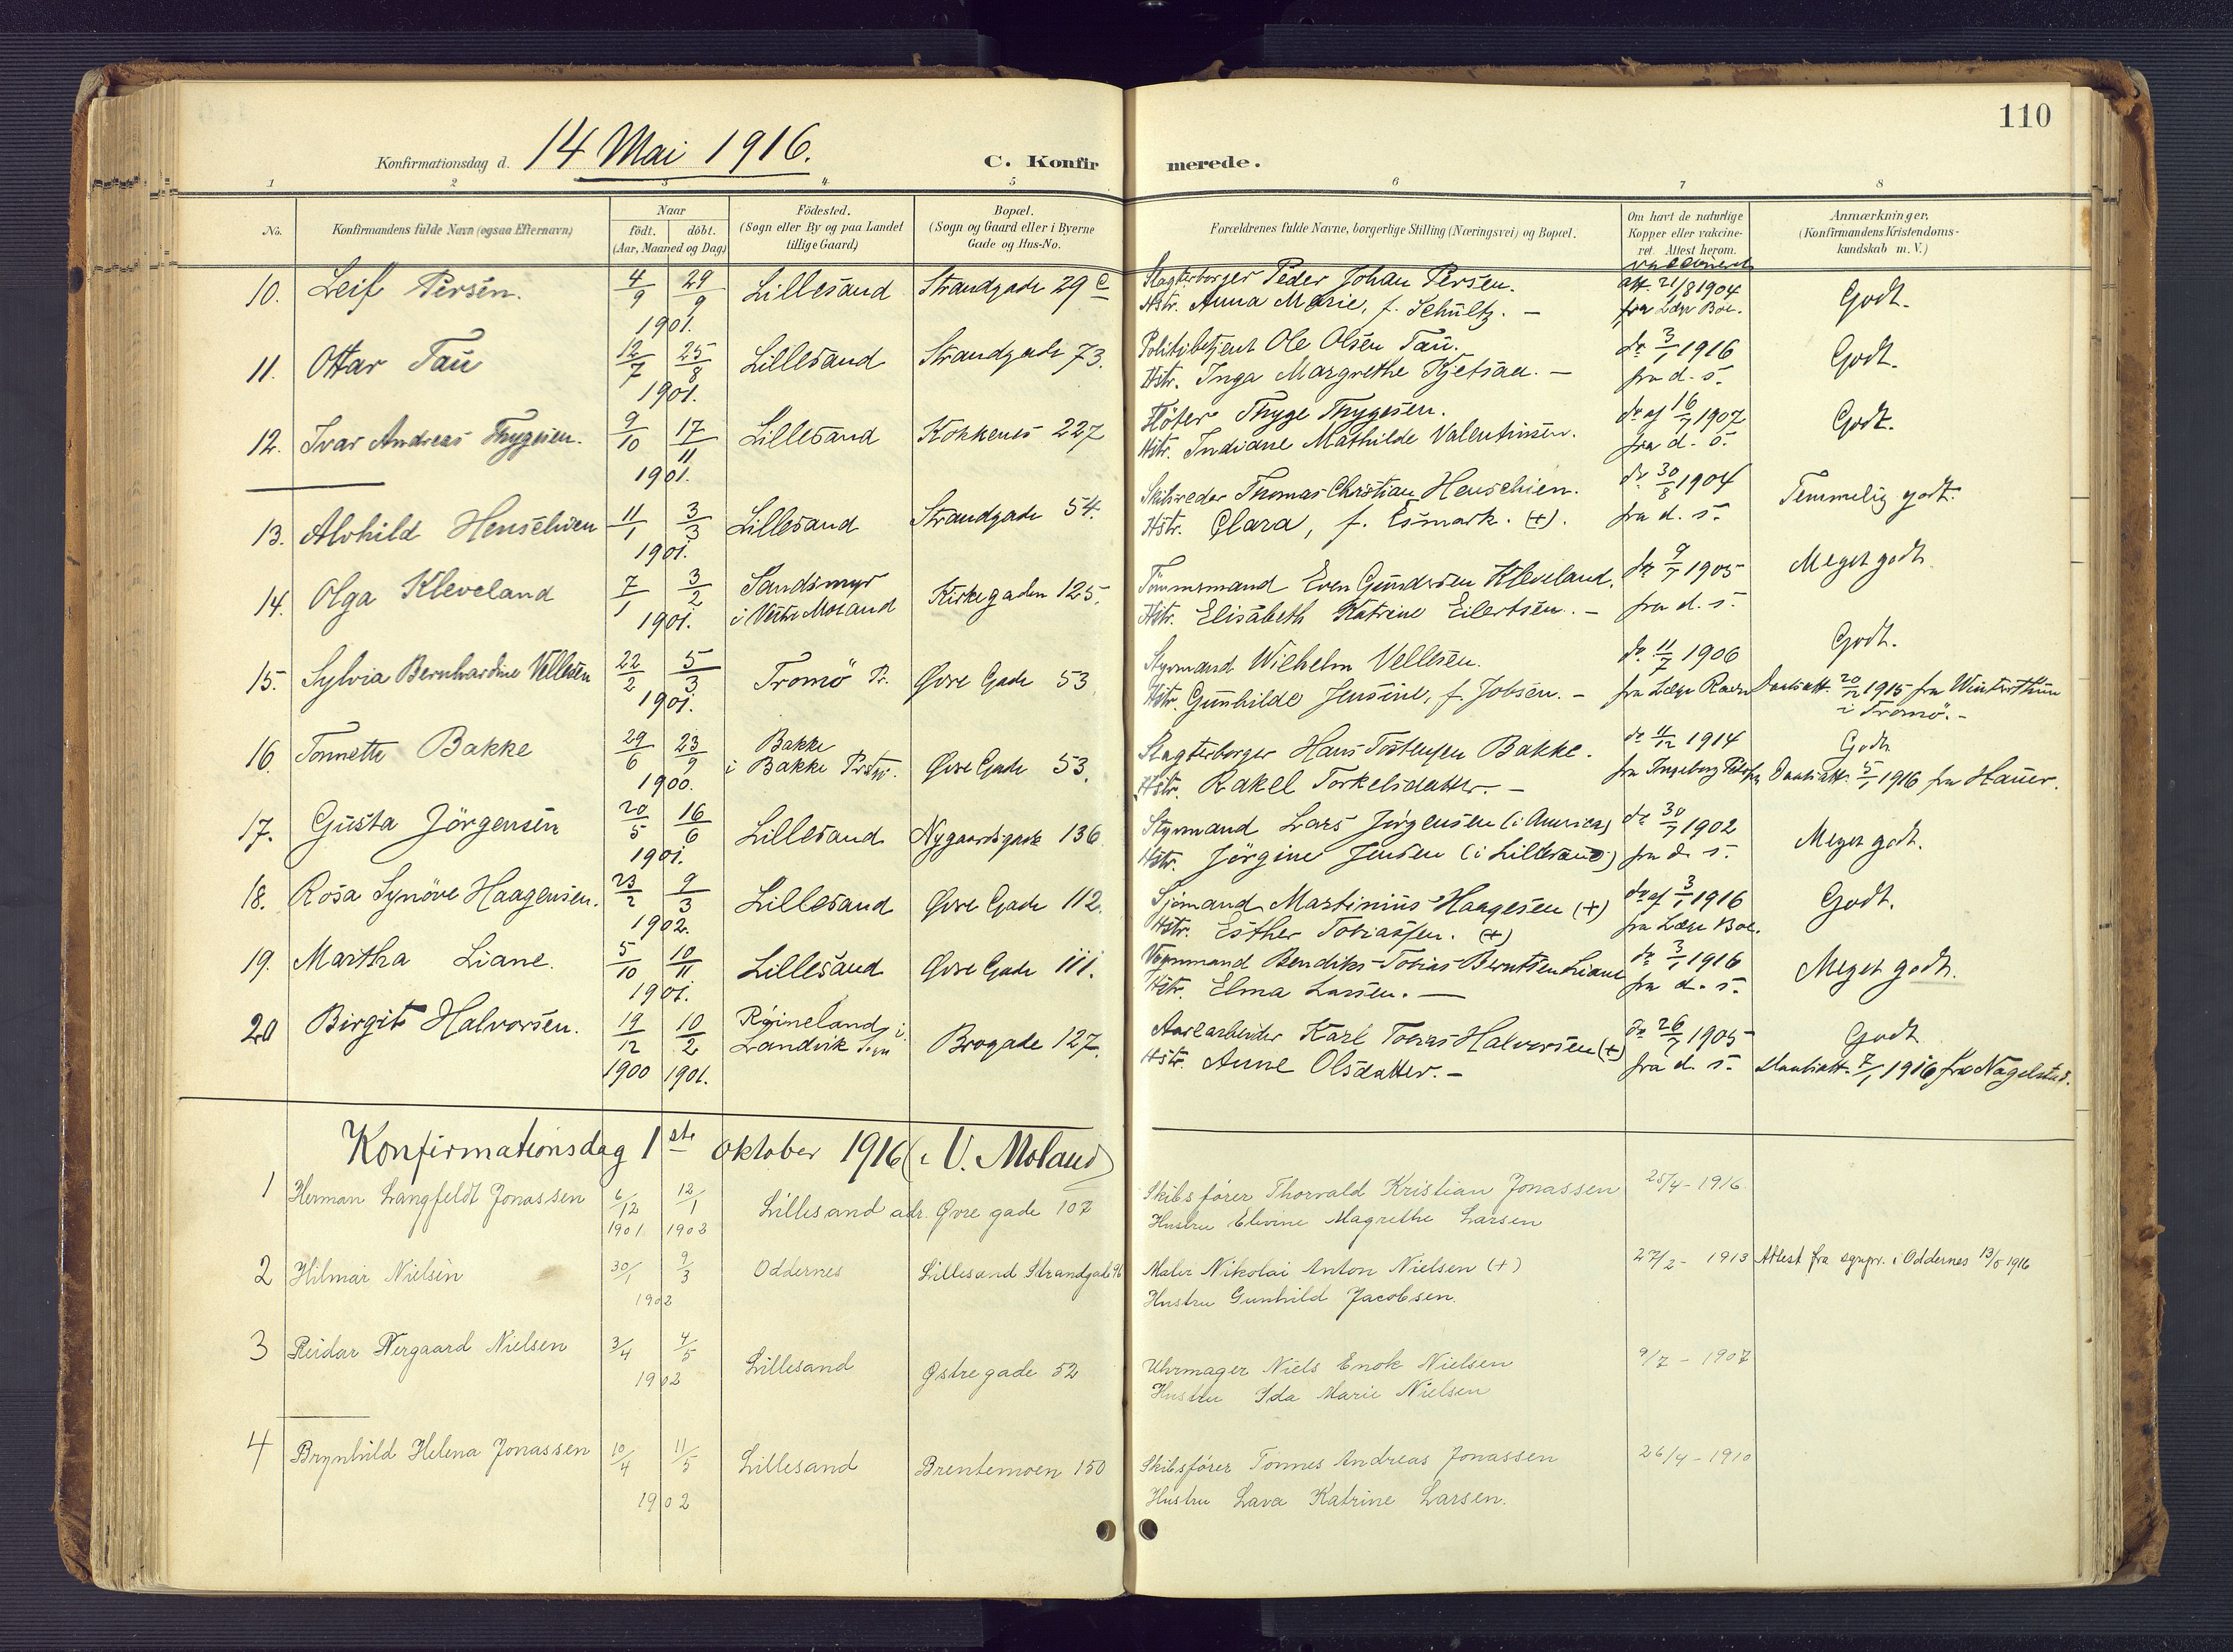 110
Konfirmationsdag d. 14 Mai 1916.
C. Konfir merede.
1 2 3 4 5 6 7 8
No.
Konfirmandens fulde Navn (ogsaa Efternavn)
Naar
födt. döbt.
(Aar, Maaned og Dag)
Födested.
(Sogn eller By og paa Landet
tillige Gaard)
Bopæl.
(Sogn og Gaard eller i Byerne
Gade og Hus-No.
Forældrenes fulde Navne, borgerlige Stilling (Næringsvei) og Bopæl.
Om havt de naturlige
Kopper eller vakcine-
ret. Attest herom.
Anmærkninger.
(Konfirmandens Kristendoms-
kundskab m. V.)
10. Leif Persen. 4/9 29/9 1901. Lillesand Strandgade 29 c
Slagterborger Peder Johan Persen.
Hstr. Anna Marie, f. Schultz. –
vaccineret
att. 21/8 1904
fra Læge Boe.
Godt.
11. Ottar Tau 12/7 25/8 1901. Lillesand Strandgade 73.
Politibetjent Ole Olsen Tau.
Hstr. Inga Margrethe Kjetsaa. –
do 3/1 1916
fra d. s.
Godt.
12. Ivar Andreas Thygesen. 9/10 17/11 1901. Lillesand Kokkenes 227
Fløter Thyge Thygesen.
Hstr. Indiane Mathilde Valentinsen.
do af 16/7 1907
fra d. s.
Godt.
13. Alvhild Henschien 11/1 3/3 1901. Lillesand Strandgade 54.
Skibsreder Thomas Christian Henschien.
Hstr. Clara, f. Esmark. (+).
do 30/8 1904
fra d. s.
Temmelig godt.
14. Olga Kleveland 7/1 3/2 1901. Sandsmyr
i Vestre Moland Kirkegaden 125.
Tömmermand Even Gundersen Kleveland.
Hstr. Elisabeth Katrine Eilertsen. –
do 9/7 1905
fra d. s.
Meget godt.
15. Sylvia Bernhardine Vellesen 22/2 5/3 1901. Tromö Pr. Øvre Gade 53
Styrmand Wilhelm Vellesen.
Hstr. Gunhilde Jensine, f. Jobsen. –
do. 11/7 1906
fra Læge Ravn
Godt.
Daabsatt. 20/12 1915 fra Winterthun
i Tromö. –
16. Tonnette Bakke 29/6 23/9 1900. Bakke
i Bakke Prstgj. Øvre Gade 53.
Slagterborger Hans Tostensen Bakke.
Hstr. Rakel Torkelsdatter. –
do 11/12 1914
fra Ingeborg
Godt
Daabsatt. 5/1 1916 fra Hauer.
17. Gusta Jörgensen 20/5 16/6 1901. Lillesand Nygaardsgade 136
Styrmand Lars Jörgensen (i America)
Hstr. Jörgine Jensen (i Lillesand)
do 30/7 1902
fra d. s.
Meget godt.
18. Rosa Synöve Haagensen. 23/2 9/3 1902. Lillesand Øvre Gade 112.
Sjömand Martinius Haagesen (+)
Hstr. Esther Tobiassen. (+)
do af 3/1 1916
fra Læge Boe.
Godt.
19. Martha Liane. 5/10 10/11 1901. Lillesand Øvre Gade 111.
Vognmand Bendiks Tobias Berntsen Liane
Hstr. Elma Larsen. –
do 3/1 1916
fra d. s.
Meget godt.
20 Birgit Halvorsen. 19/12 1900 10/2 1901. Röineland i
Landvik Sogn Brogade 127.
Karl Tobias Halvorsen (+)
Hstr. Anne Olsdatter. –
do 26/7 1905
fra d. s.
Godt
Daabsatt. 7/1 1916 fra Nagelstad.
Konfirmationsdag 1ste oktober 1916 (i V. Moland)
1 Herman Langfeldt Jonassen 6/12 1901 12/1 1902 Lillesand adr. Øvre gade 107
Skibsfører Thorvald Kristian Jonassen
Hustru Elevine Magrethe Larsen
25/4 – 1916
2 Hilmar Nielsen 30/1 9/3 1902 Oddernes Lillesand Strandgade 96
Maler Nikolai Anton Nielsen (+)
Hustru Gunhild Jacobsen.
27/2 – 1913
Attest fra sgnpr. i Oddernes 13/5 1916
3 Reidar Nergaard Nielsen 3/4 4/5 1902 Lillesand Østre gade 52
Uhrmager Niels Enok Nielsen
Hustru Ida Marie Nielsen
9/7 – 1907
4 Brynhild Helena Jonassen 10/4 11/5 1902 Lillesand Brentemoen 150
Skibsfører Tönnes Andreas Jonassen
Hustru Lava Katrine Larsen.
26/4 – 1910